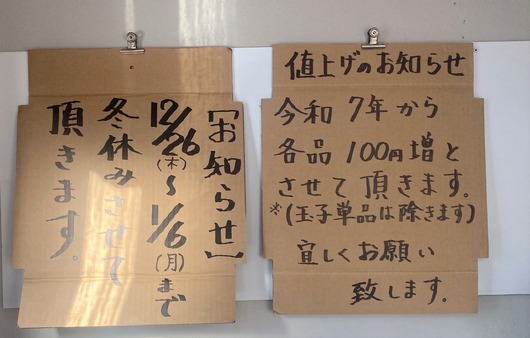 [お知らせ]
12/26(木)〜1/6(月)まで
冬休みさせて
頂きます。
値上げのお知らせ
令和7年から
各品100円増と
させて頂きます。
※(玉子単品は除きます)
宜しくお願い
致します。